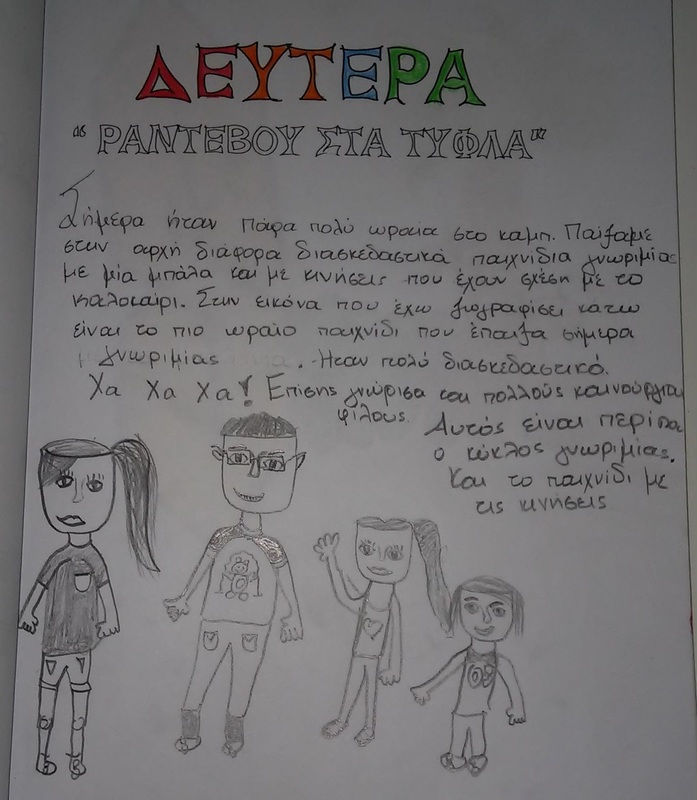 ΔΕΥΤΕΡΑ
"ΡΑΝΤΕΒΟΥ ΣΤΑ ΤΥΦΛΑ"
Σήμερα ήταν πάρα πολύ ωραία στο καμπ. Παίξαμε
στην αρχή διάφορα διασκεδαστικά παιχνίδια γνωριμίας
με μία μπάλα και με κινήσεις που έχουν σχέση με το
καλοκαίρι. Στην εικόνα που έχω ζωγραφίσει κάτω
είναι το πιο ωραίο παιχνίδι που έπαιξα σήμερα
γνωριμίας . Ήταν πολύ διασκεδαστικό.
Χα Χα Χα! Επίσης γνώρισα και πολλούς καινούργιου
φίλους. Αυτός είναι περίπου
ο κύκλος γνωριμίας.
Και το παιχνίδι με
τις κινήσεις